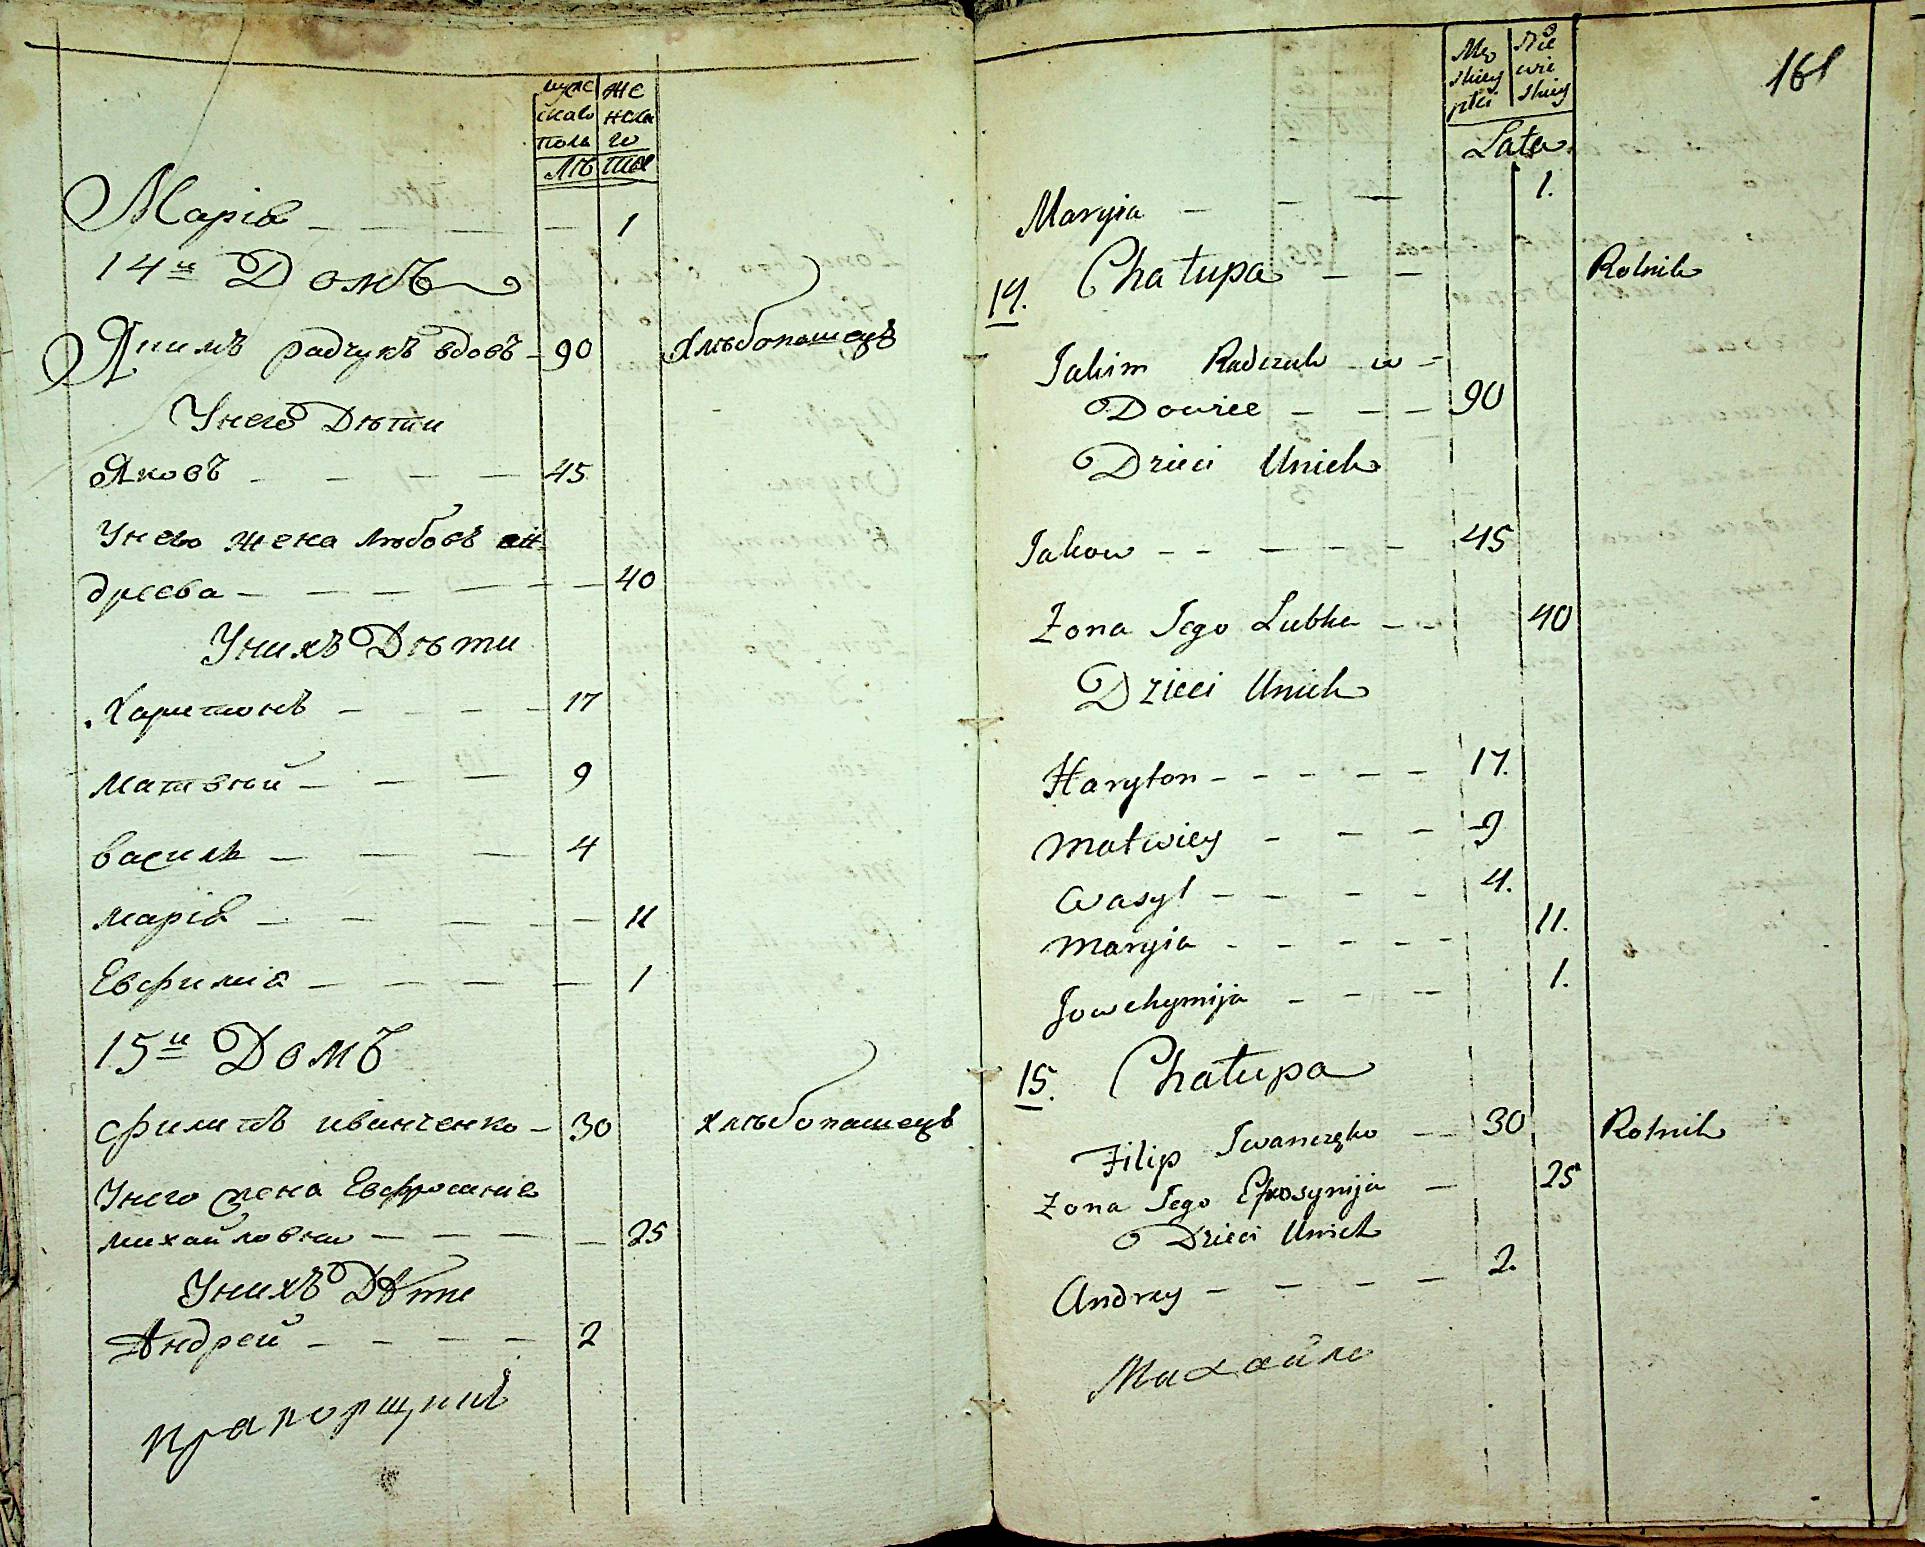 мужс
скаго
пола
же
нска
го
Лѣта
Марія — — — — 1
14й Домъ
Якимъ радчукъ вдовъ - 90 Хлѣбопашецъ
Унего Дѣти
Яковъ - - - — 45
Унево жена любовъ ан
дреева — — — — — 40
Унихъ Дѣти
Харитонъ — — — — 17
матвѣй — — — 9
василь — — — 4
марія — — — — — 11
Евфимія — — — — — 1
15й Домъ
филипъ иванченко — 30 хлѣбопашецъ
Унего жена Евфросинія
михайловна — — — — 25
Унихъ Дѣти
Андрей — — — — 2
прапорщикъ
Mę
skiey
płci
Nie
wie
skiey
161
Lata
Maryia — — — 1.
14. Chałupa — — Rolnik
Jakim Radczuk w -
Dowiec — — — 90
Dzieci Unich
Jakow — — — — — 45
Żona Jego Lubka — — 40
Dzieci Unich
Haryton — — — — — 17.
Matwiey — — — 9
Wasyl — — — — 4.
Maryia — — — — — 11.
Jowchymija — — — 1.
15. Chałupa
Filip Iwanczęko — 30 Rolnik
Żona Jego Efrosynija — 25
Dzieci Unich
Andrey — — — — 2.
Михайло